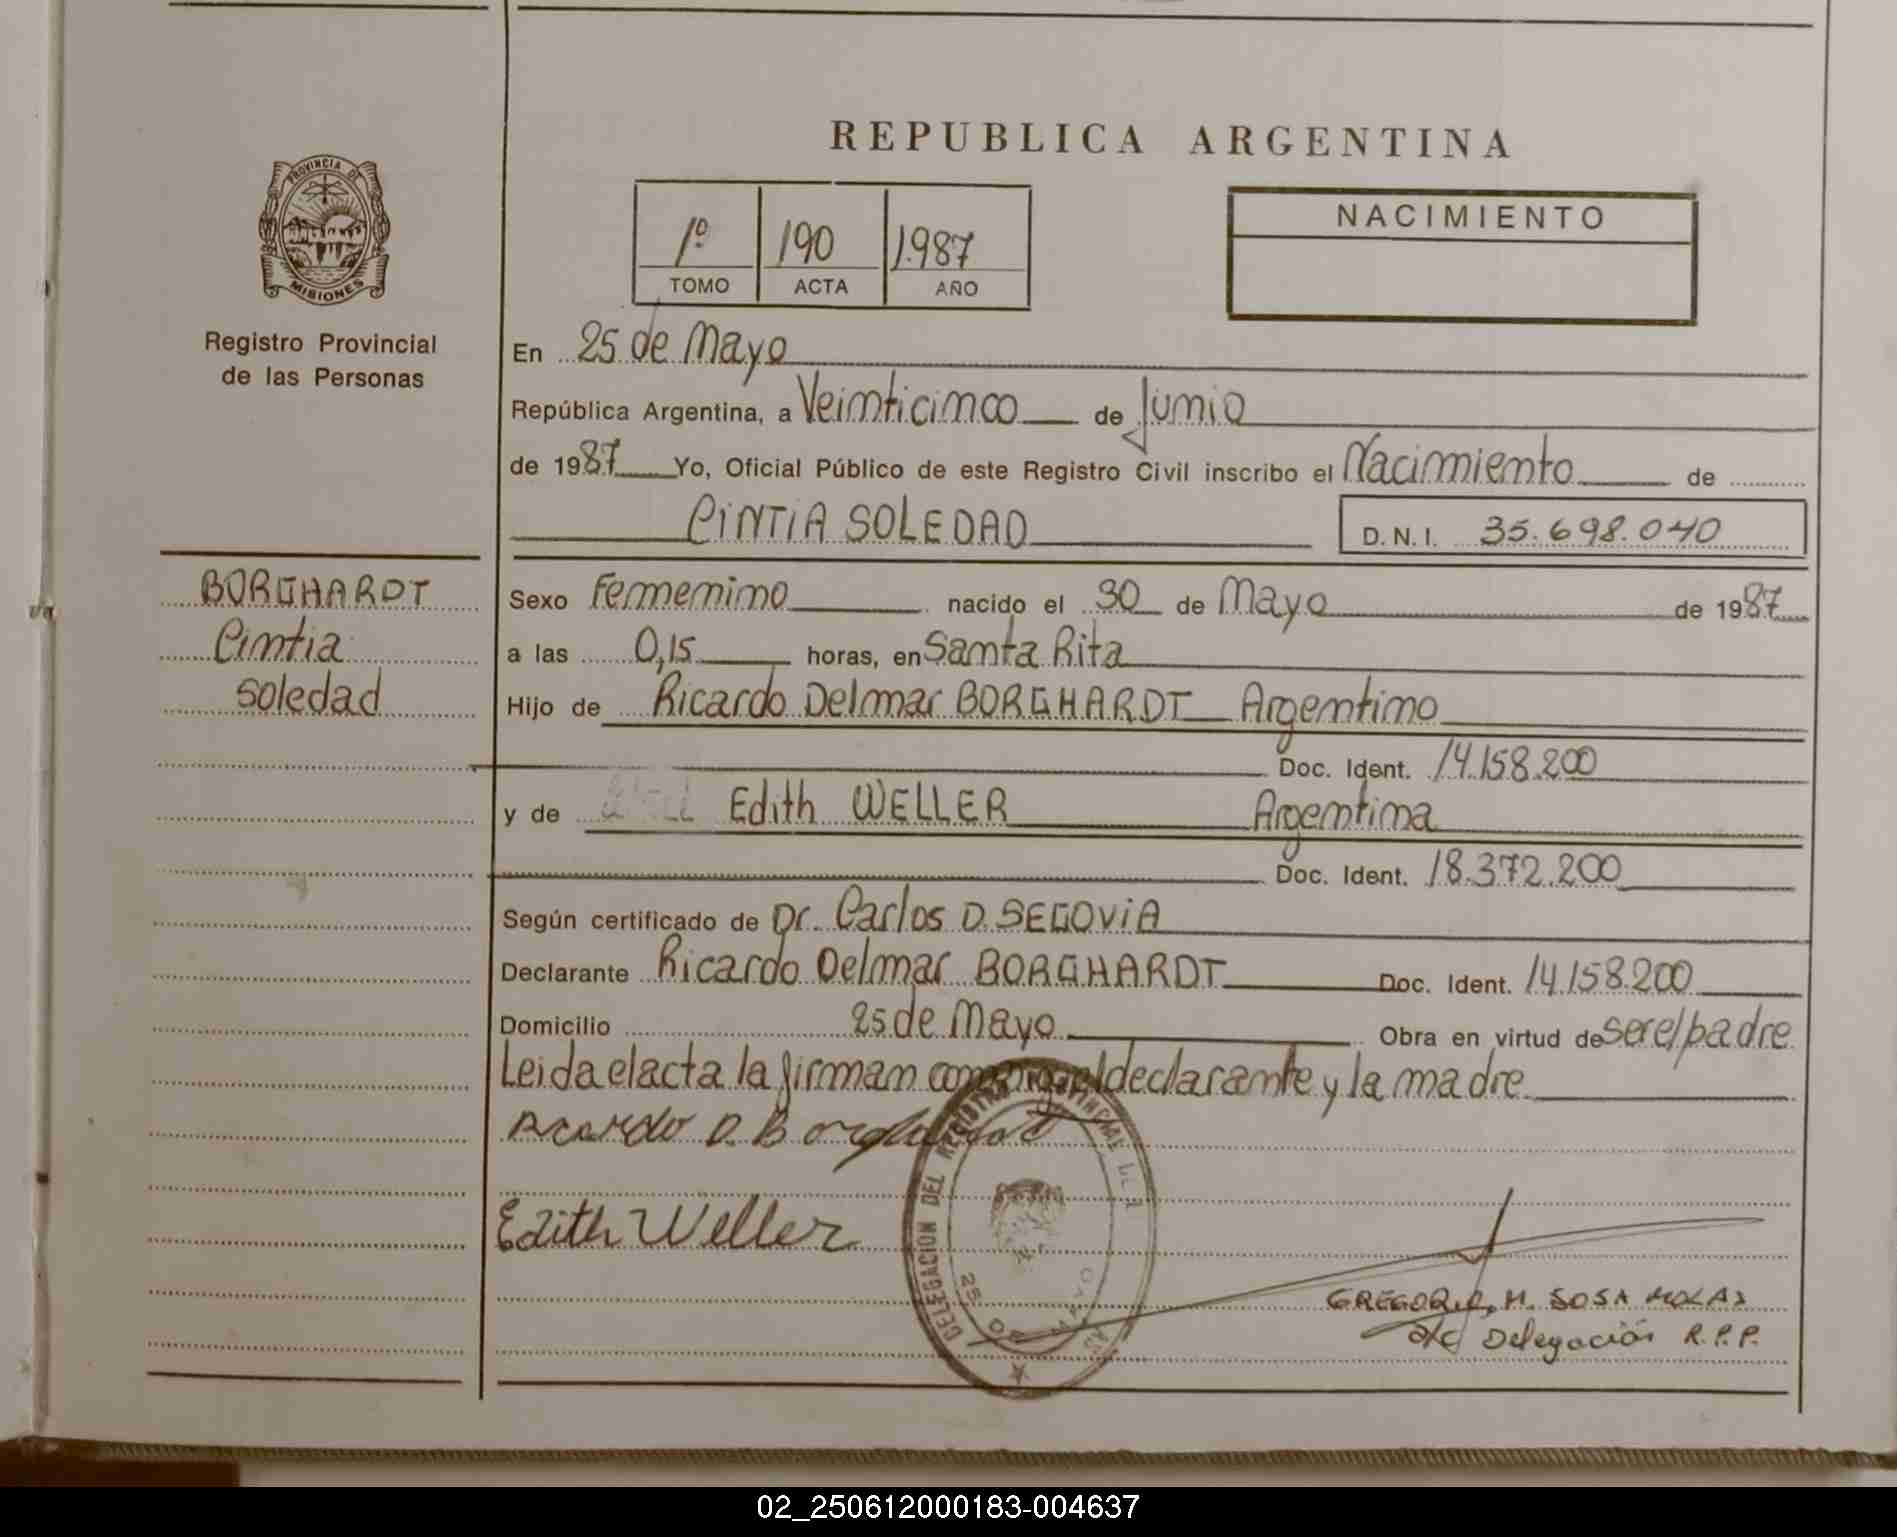 REPUBLICA ARGENTINA
PROVINCIA DE
MISIONES
Registro Provincial
de las Personas
1º 190 1.987
TOMO ACTA AÑO
NACIMIENTO
En 25 de Mayo
República Argentina, a Veinticinco de Junio
de 1987 Yo, Oficial Público de este Registro Civil inscribo el Nacimiento de
CINTIA SOLEDAD D.N.I. 35.698.040
BORGHARDT
Cintia
Soledad
Sexo Femenino nacido el 30 de Mayo de 1987
a las 0,15 horas, en Santa Rita
Hijo de Ricardo Delmar BORGHARDT Argentino
Doc. Ident. 14.158.200
y de Edith WELLER Argentina
Doc. Ident. 18.372.200
Según certificado de Dr. Carlos D. SEGOViA
Declarante Ricardo Delmar BORGHARDT Doc. Ident. 14.158.200
Domicilio 25 de Mayo Obra en virtud de ser el padre
Leida el acta la firman conmigo el declarante y la madre
Ricardo D. Borghardt
Edith Weller
DELEGACION DEL REGISTRO PROVINCIAL DE
25 DE MAYO
GREGORIO M. SOSA MOLAS
a/c Delegación R.P.P.
02_250612000183-004637